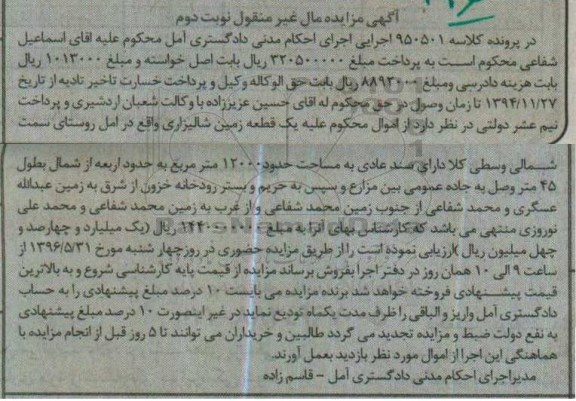 آگهی مزایده مال غیر منقول نوبت دوم
در پرونده کلاسه ۹۵۰۵۰۱ اجرایی اجرای احکام مدنی دادگستری آمل محکوم علیه اقای اسماعیل
شفاعی محکوم است به پرداخت مبلغ ۳۲۰۵۰۰۰۰۰ ریال بابت اصل خواسته و مبلغ ۱۰۱۳۰۰۰ ریال
بابت هزینه دادرسی ومبلغ ۸۸۹۲۰۰۰ ریال بابت حق الوکاله وکیل و پرداخت خسارت تاخیر تادیه از تاریخ
۱۳۹۴/۱۱/۲۷ تا زمان وصول در حق محکوم له اقای حسین عزیززاده با وکالت شعبان اردشیری و پرداخت
نیم عشر دولتی در نظر دارد از اموال محکوم علیه یک قطعه زمین شالیزاری واقع در امل روستای سمت
شمالی وسطی کلا دارای سند عادی به مساحت حدود ۱۲۰۰۰ متر مربع به حدود اربعه از شمال بطول
۴۵ متر وصل به جاده عمومی بین مزارع و سپس به حریم و بستر رودخانه خزون از شرق به زمین عبدالله
عسگری و محمد شفاعی از جنوب زمین محمد شفاعی و از غرب به زمین محمد شفاعی و محمد علی
نوروزی منتهی می باشد که کارشناس بهای آنرا به مبلغ ۱۴۴۰۰۰۰۰۰۰ ریال (یک میلیارد و چهارصد و
چهل میلیون ریال )ارزیابی نموده است را از طریق مزایده حضوری در روزچهار شنبه مورخ ۱۳۹۶/۵/۳۱ از
ساعت ۹ الی ۱۰ همان روز در دفتر اجرا بفروش برساند مزایده از قیمت پایه کارشناسی شروع و به بالاترین
قیمت پیشنهادی فروخته خواهد شد برنده مزایده می بایست ۱۰ درصد مبلغ پیشنهادی را به حساب
دادگستری آمل واریز و الباقی را ظرف مدت یکماه تودیع نماید در غیر اینصورت ۱۰ درصد مبلغ پیشنهادی
به نفع دولت ضبط و مزایده تجدید می گردد طالبین و خریداران می توانند تا ۵ روز قبل از انجام مزایده با
هماهنگی این اجرا از اموال مورد نظر بازدید بعمل آورند.
مدیراجرای احکام مدنی دادگستری آمل - قاسم زاده